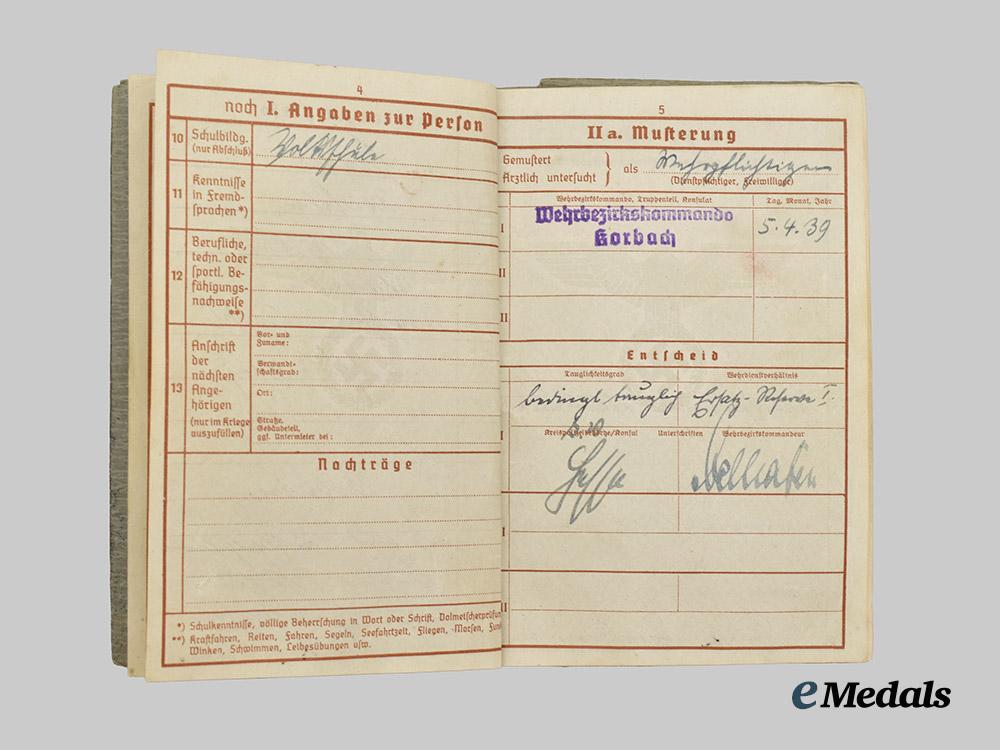 4
noch I. Angaben zur Person
10 Schulbildg. (nur Abschluß)
Volksschule
11 Kenntnisse in Fremd-
sprachen *)
12 Berufliche,
techn. oder
sportl. Be-
fähigungs-
nachweise
**)
13 Anschrift
der
nächsten
Ange-
hörigen
(nur im Kriege
auszufüllen)
Vor- und
Zuname:
Verwandt-
schaftsgrad:
Ort:
Straße,
Gebäudeteil,
ggf. Untermieter bei:
Nachträge
*) Schulkenntnisse, völlige Beherrschung in Wort oder Schrift, Dolmetscherprüfun
**) Kraftfahren, Reiten, Fahren, Segeln, Seefahrtzeit, Fliegen, Morsen, Fun
Winken, Schwimmen, Leibesübungen usw.
5
IIa. Musterung
Gemustert
Ärztlich untersucht } als Wehrpflichtiger
(Dienstpflichtiger, Freiwilliger)
Wehrbezirkskommando, Truppenteil, Konsulat
Tag, Monat, Jahr
I
Wehrbezirkskommando
Korbach
5.4.39
II
II
Entscheid
Tauglichkeitsgrad
Wehrdienstverhältnis
bedingt tauglich
Ersatz-Reserve I.
I
Kreispolizeibehörde/Konsul
Unterschriften
Wehrbezirkskommandeur
I
II
eMedals